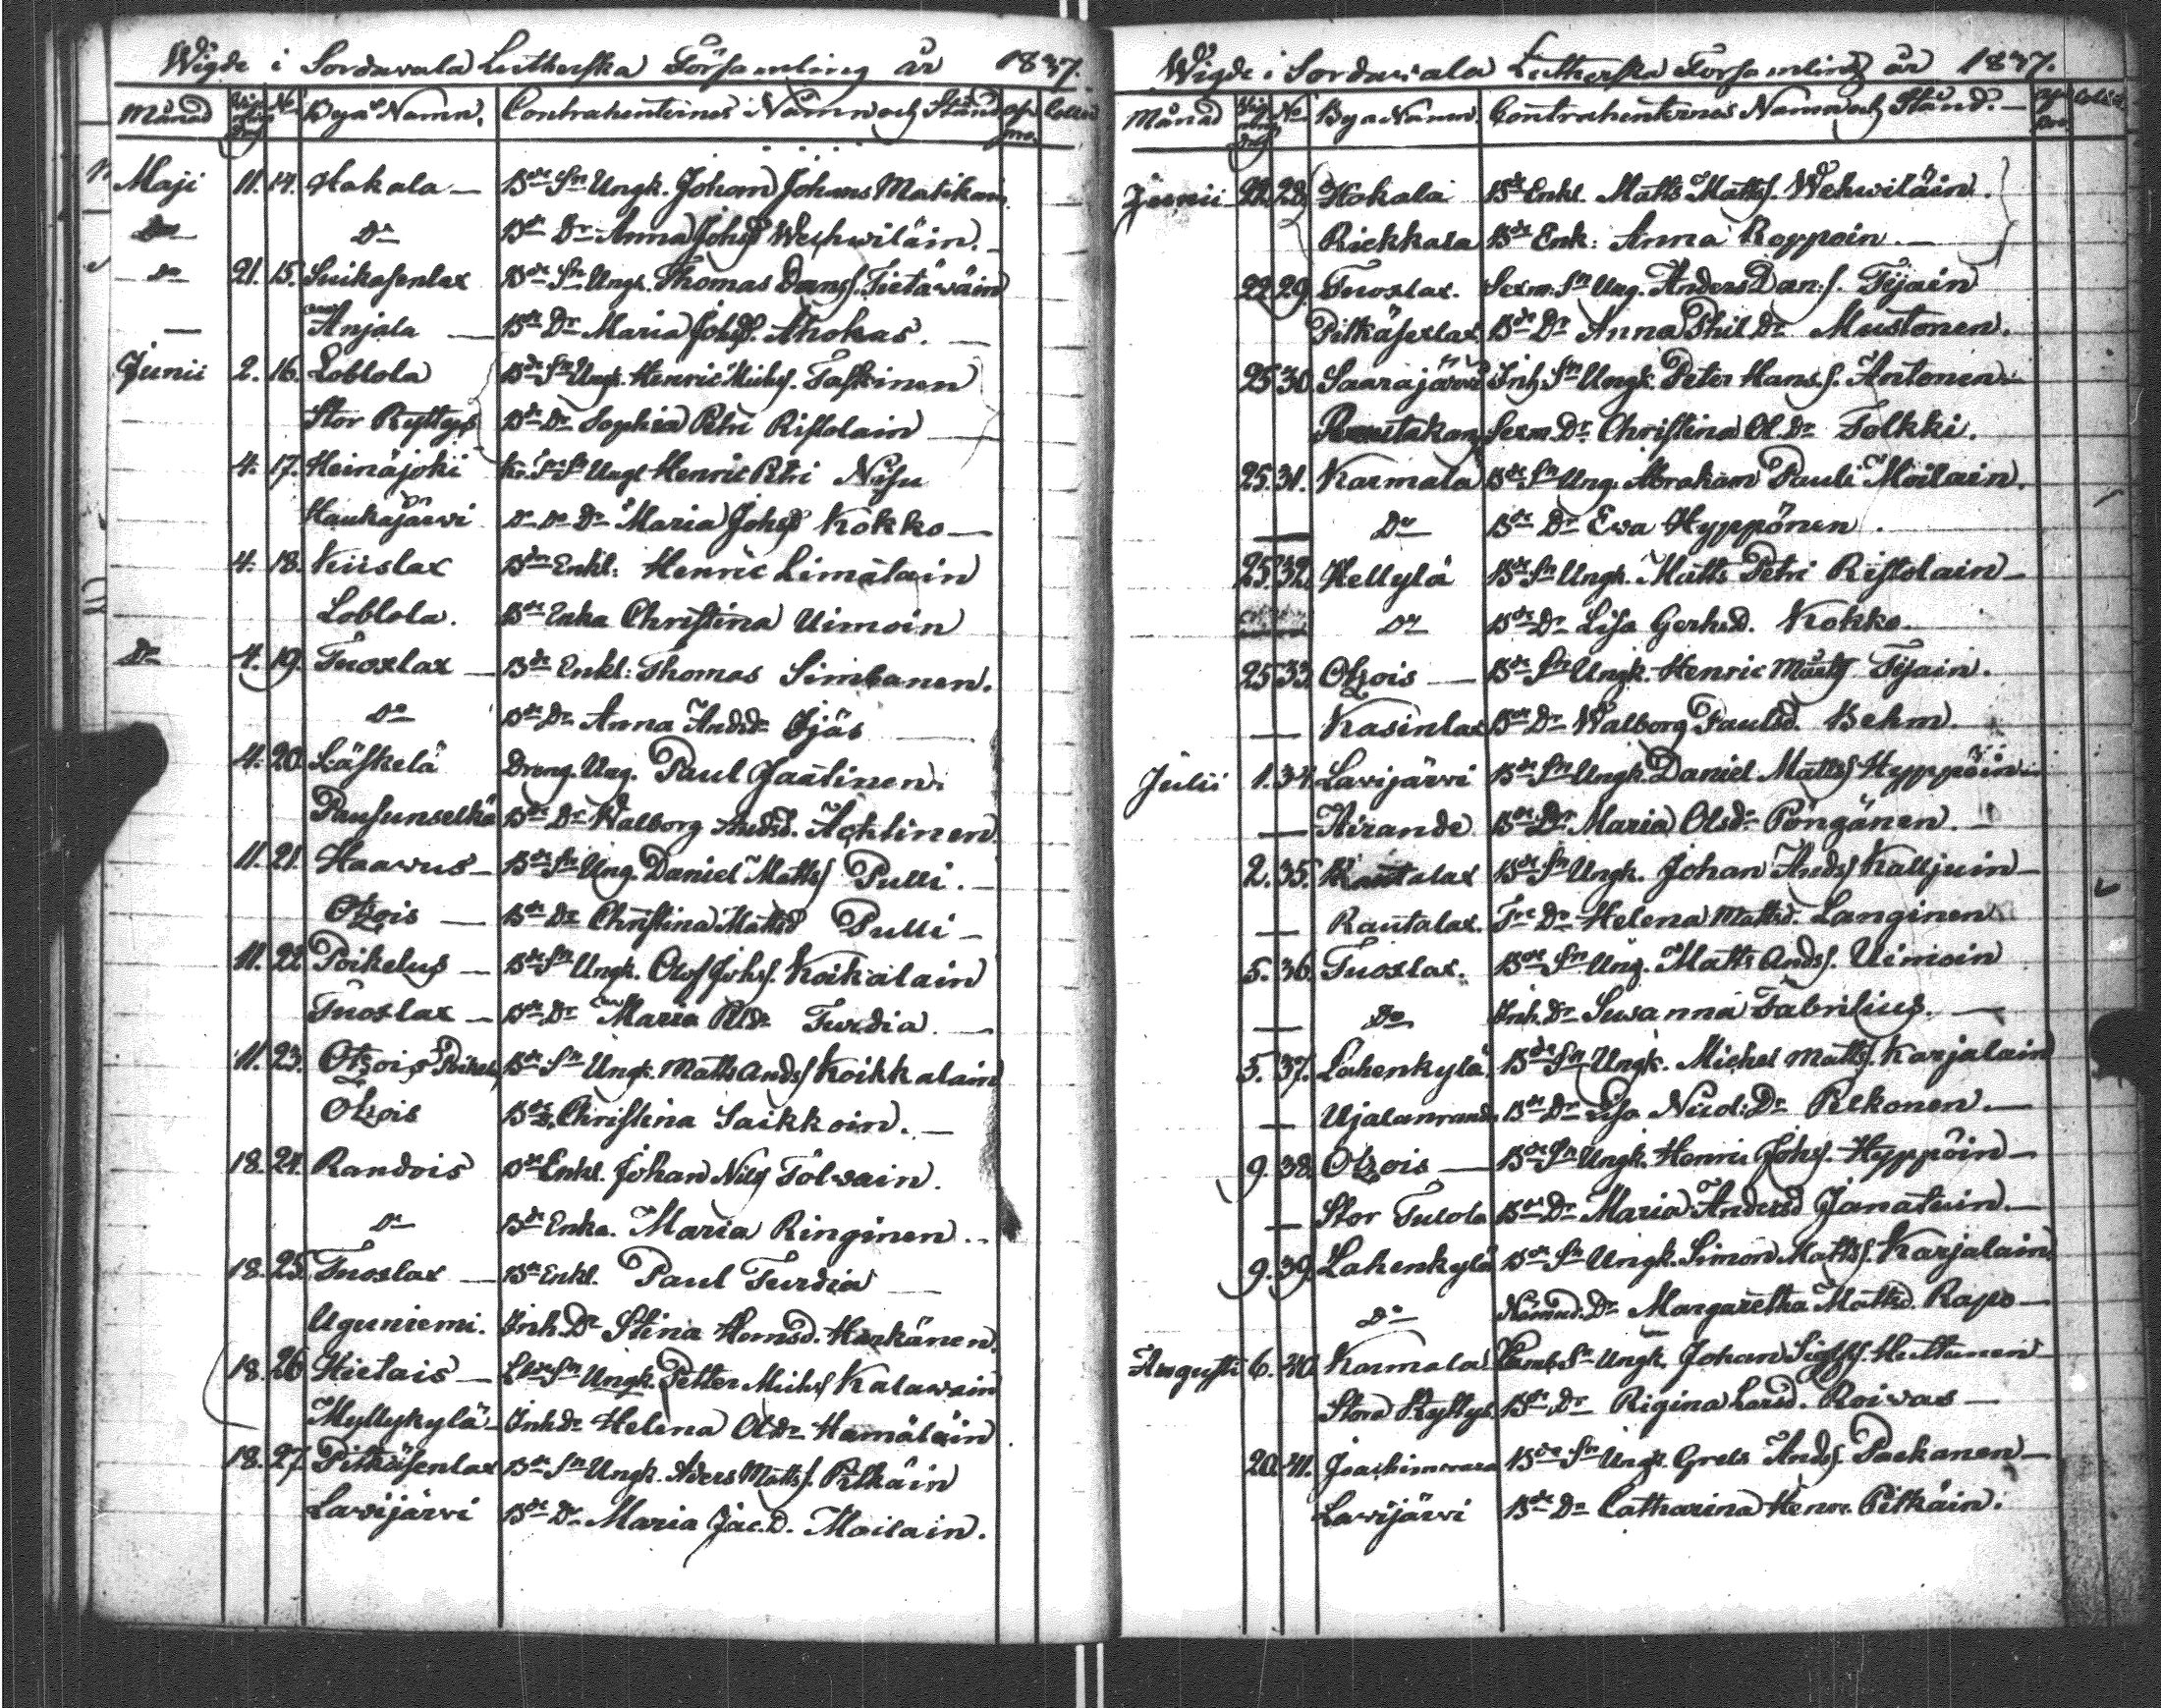 Wigde i Sordavala Lutherska Församling år 1837.
Månad No Bya Namn. Contrahenternes Namn och Stånd
Maji 11. 14. Hakala — Bde Sn Ungk. Johan Johans Matikain
Do Do Bde Dr Anna Johsd Wehwiläin. —
do 21. 15. Suikasenlax Bde Sn Ungk. Thomas Danss. Tietäwäin
— Anjala — Bde Dr Maria Johsd. Ahokas. —
Junii 2. 16. Loblola Bde Sn Ungk. Henric Michs. Taskinen
Stor Ryttys Bde Dr Sophia Petri Ristolain —
4. 17. Heinäjoki Sn Ungk Henric Petri Nisu
Haukajärvi Do Do Dr Maria Johsd Kokko —
4. 18. Kiislax Bdn Enkl: Henric Limatain
Loblola. Bde Enka Christina Uimoin
Do 4. 19. Tuoxlax — Bde Enkl: Thomas Simbanen.
Do Bde Dr Anna Andsdr Ijäs —
4. 20. Läskelä Dreng. Ung. Paul Jaatinen.
Pausunselkä Bde Dr Walborg Andsd. Achtinen
11. 21. Haawus — Bde Sn Ung. Daniel Matts Pulli. —
Otzois — Bde Dr Christina Mattsd Pulli —
11. 22. Poikelus — Bde Sn Ungk. Olof Johs. Koikalain
Tuoxlax — Bde Dr Maria Turdia. —
11. 23. Otzois Bde Sn Ungk. Matts Ands Koikkalain
Otzois Bde Christina Saikkoin. —
18. 24. Randois Bde Enkl. Johan Nils Tolvain.
Do Bde Enka. Maria Ringinen. —
18. 25. Tuoxlax — Bde Enkl. Paul Turdia —
Uguniemi. Inh. Dr Stina Hemsd. Harkänen.
18. 26 Hietais — Sn Ungk. Petter Michs Kalawain
Myllykylä — Inh dr Helena Ol Dr Hamäläin
18. 27. Pitkäsenlax Bde Sn Ungk. Aders Matts. Pitkäin
Lavijärvi Bde Dr Maria Jac. D. Moilain.
Wigde i Sordavala Lutherska Församling år 1837.
Månad No Bya Namn. Contrahenternes Namn och Stånd. —
Junii 22. 28. Hokala Bde Enkl. Matts Matts. Wehwiläin.
Riekkala Bde Enk: Anna Roppoin. —
22. 29. Tuoxlax. Sexm: Sn Ung. Anders Dan: s. Tijain
Pitkäsexlax Bde Dr Anna Phil Dr Mustonen.
25. 30. Saarajärwi Inh: Sn Ungk. Peter Hans. s. Antonen —
Sexm. Dr Christina Ol. Dr Tolkki.
25. 31. Karmala Bde Sn Ung. Abraham Pauli Moilain.
— Do Bde Dr Ewa Hyppönen.
25. 32. Hellylä Bde Sn Ungk. Matts Petri Ristolain —
Do Bde Dr Lisa Gerhsd. Kokko.
25. 33. Otzois — Bde Sn Ungk. Henric Matts Tijain.
— Kasinlax Bde Dr Walborg Paulsd. Behm
Julii 1. 34. Lavijärvi Bde Sn Ungk. Daniel Matts Hyppöin —
— Hirande Bde Dr Maria Olsdr Pöngänen. —
2. 35. Rautalax Bde Sn Ungk. Johan Ands Kalljuin —
— Rautalax. Dr Helena Mattsd. Langinen
5. 36. Tuoxlax. Bde Sn Ung. Matts Ands. Uimoin
— Do Inh. Dr Susanna Fabritius. —
5. 37. Lahenkylä. Bde Sn Ungk. Michel Matts. Karjalain
— Ujalanranda Bde Dr Lisa Nicol: Dr Pekonen. —
9. 38. Otzois — Bde Sn Ungk. Henric Johs. Hyppöin —
— Stor Tulola Bde Dr Maria Andersd Janatuin. —
9. 39. Lahenkylä Bde Sn Ungk. Simon Matts. Karjalain
Do Nämnd. Dr Margaretha Mattsd. Rapo —
Augusti 6. 40. Karmala Sn Ungk. Johan Huttunen —
Stora Ryttys Bde Dr Rigina Larsd. Roivas —
20. 41. Joachimvara Bde Sn Ungk. Grels Ands. Paekanen —
Lavijärvi Bde Dr Catharina Henr. Pitkäin.